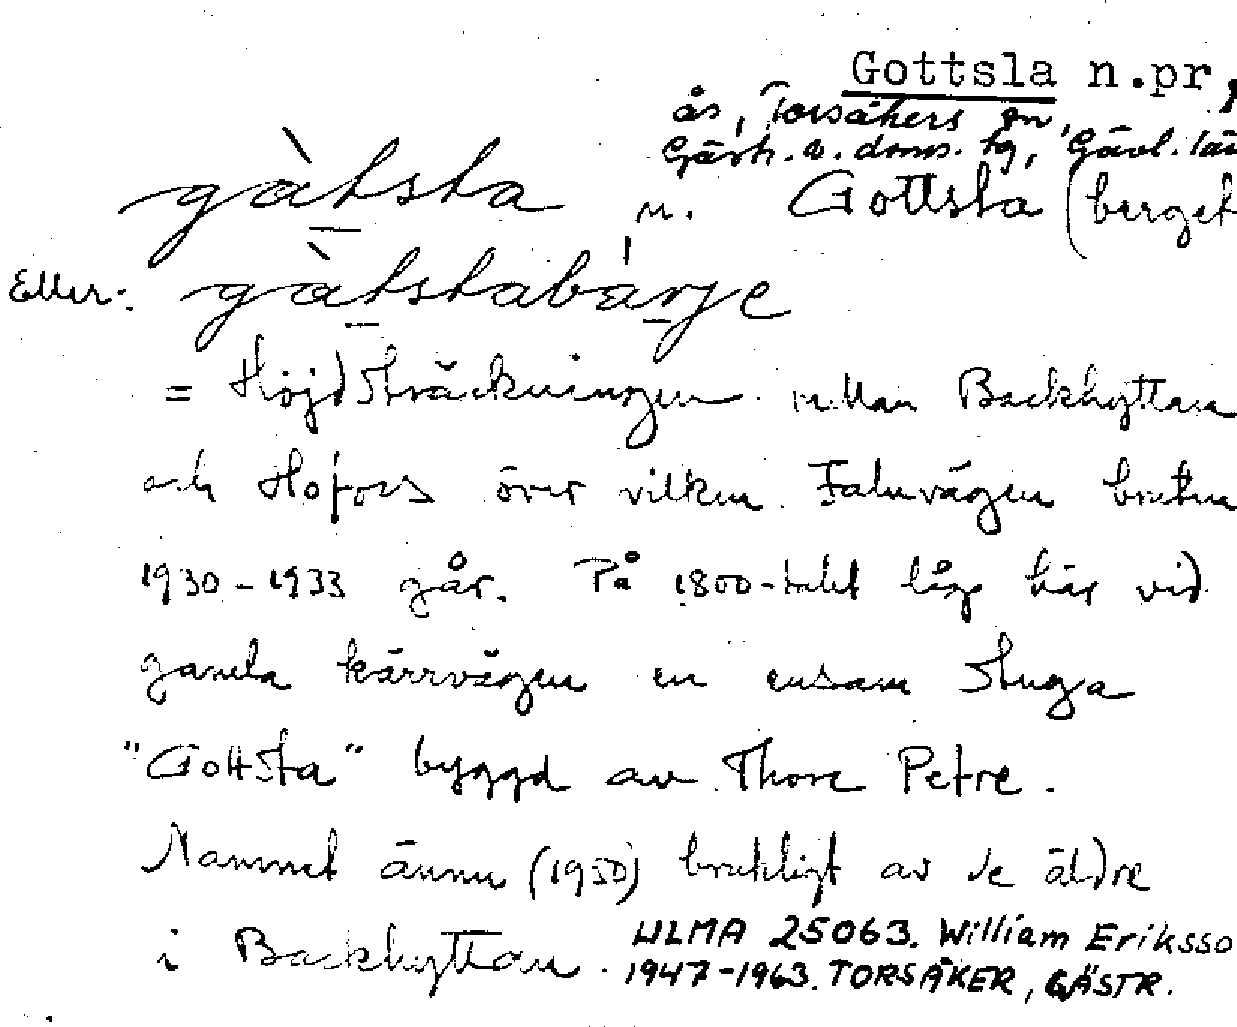 Gottsla n.pr,
ås, Torsåkers sn,
Gästr. ö. doms. hg, Gävl. lä
gàtsta n. Gottsta (berget
Eller: gàtstabárje
= Höjdsträckningen mellan Backhyttan
och Hofors över vilken Faluvägen bruten
1930-1933 går. På 1800-talet låg här vid
gamla kärrvägen en ensam stuga
"Gottsta" byggd av Thore Petre.
Namnet ännu (1950) brukligt av de äldre
i Backhyttan. ULMA 25063. William Eriksso
1947-1963. TORSÅKER, GÄSTR.